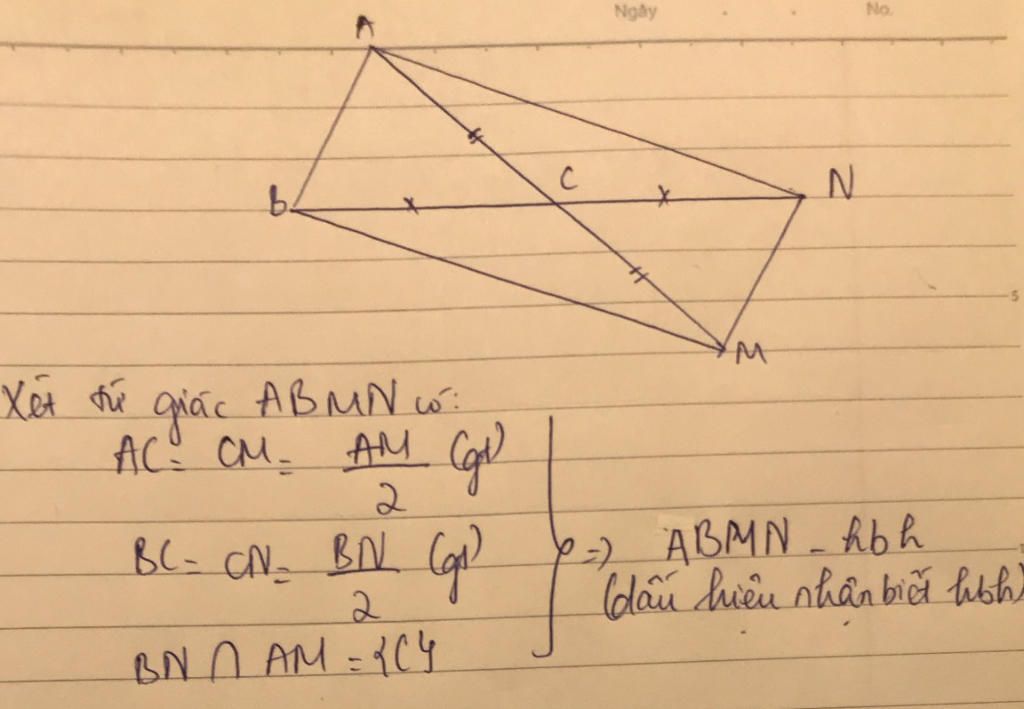 Ngày . . No.
A
C
B
N
M
5
Xét tứ giác ABMN có:
AC = CM = AM/2 (gt)
BC = CN = BN/2 (gt)
BN ∩ AM = {C}
=> ABMN - hbh
(dấu hiệu nhận biết hbh)